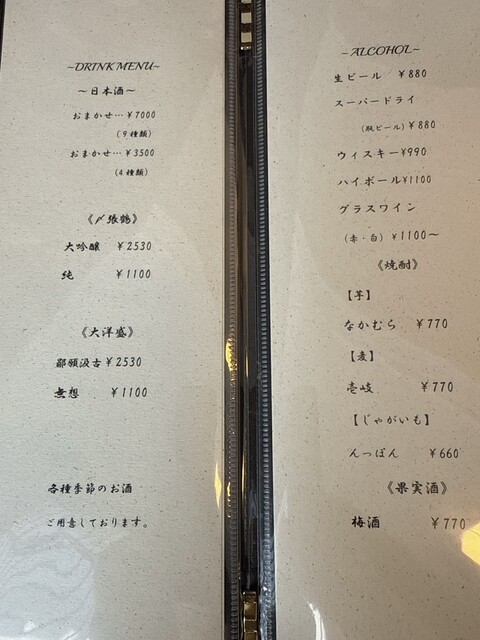 ~DRINK MENU~
～日本酒～
おまかせ…¥7000
(9種類)
おまかせ…¥3500
(4種類)
《〆張鶴》
大吟醸 ¥2530
純 ¥1100
《大洋盛》
鄙願汲古¥2530
無想 ¥1100
各種季節のお酒
ご用意しております。
~ALCOHOL~
生ビール ¥880
スーパードライ
(瓶ビール)¥880
ウィスキー¥990
ハイボール¥1100
グラスワイン
(赤・白) ¥1100～
《焼酎》
【芋】
なかむら ¥770
【麦】
壱岐 ¥770
【じゃがいも】
んっぽん ¥660
《果実酒》
梅酒 ¥770